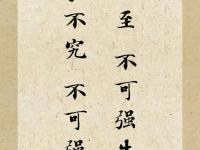 至 不可强
不究 不可强